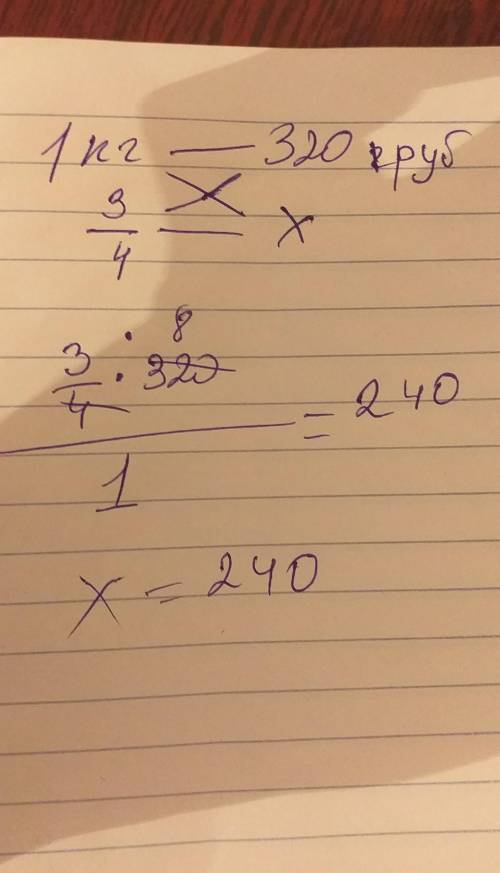 1 кг — 320 руб
3/4 — x
8
3/4 · 320
/ 1 = 240
x = 240